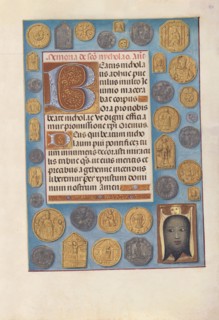 Memoria de sco nicholao. Ant
Beatus nichola
us adhuc pue
rulus multo Je
iunio macera
bat corpus
Ora pro nobis
beate nicholae ut digni efficia
mur promissione xpi Oremus
Deus qui beatum nicho
laum pium pontificem tu
um decorasti miracu
lis tribue qs ut eius meritis et
precibus a gehenne incendiis
liberemur per xpistum domi
num nostrum amen